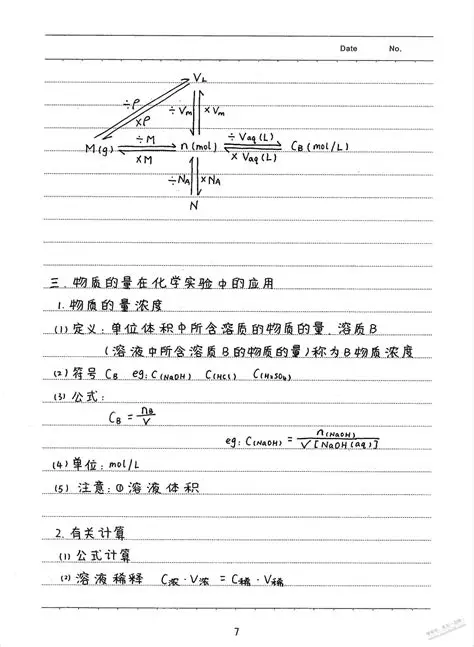 Date No.
V L
÷ρ ×ρ ÷Vm ×Vm
M(g) ÷M ×M n(mol) ÷Vaq(L) × Vaq(L) CB(mol/L)
÷NA ×NA
N
三.物质的量在化学实验中的应用
1.物质的量浓度
(1)定义:单位体积中所含溶质的物质的量.溶质B
(溶液中所含溶质B的物质的量)称为B物质浓度
(2)符号 CB eg: C(NaOH) C(HCl) C(H2SO4)
(3)公式:
CB = nB/V
eg: C(NaOH) = n(NaOH)/V[NaOH(aq)]
(4)单位: mol/L
(5) 注意:①溶液体积
2.有关计算
(1)公式计算
(2)溶液稀释 C浓·V浓 = C稀·V稀
7